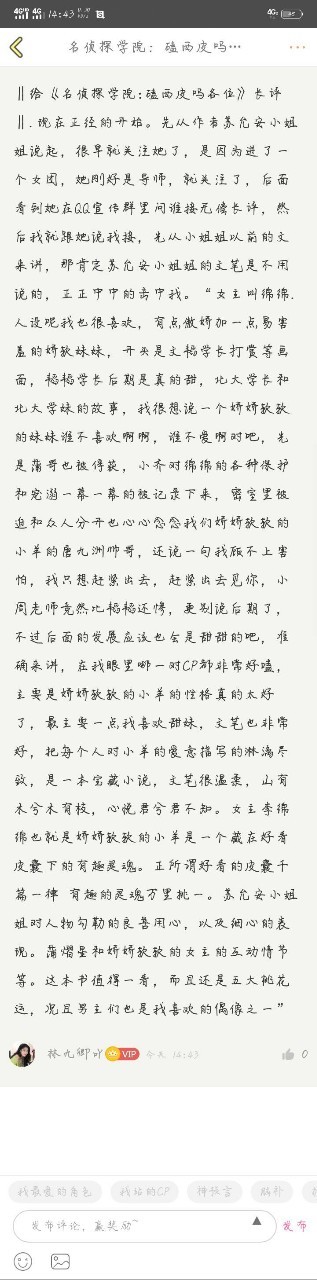 14:43
名侦探学院：磕西皮吗…
‖给《名侦探学院:磕西皮吗各位》长评
‖.现在正经的开始。先从作者苏允安小姐
姐说起，很早就关注她了，是因为进了一
个女团，她刚好是导师，就关注了，后面
看到她在QQ宣传群里问谁接无偿长评，然
后我就跟她说我接，先从小姐姐以前的文
来讲，那肯定苏允安小姐姐的文笔是不用
说的，正正中中的击中我。“女主叫绵绵.
人设呢我也很喜欢，有点傲娇加一点易害
羞的娇软妹妹，开头是文韬学长打赏等画
面，韬韬学长后期是真的甜，北大学长和
北大学妹的故事，我很想说一个娇娇软软
的妹妹谁不喜欢啊啊，谁不爱啊对吧，先
是蒲哥也被俘获，小齐对绵绵的各种保护
和宠溺一幕一幕的被记录下来，密室里被
迫和众人分开也心心念念我们娇娇软软的
小羊的唐九洲帅哥，还说一句我顾不上害
怕，我只想赶紧出去，赶紧出去见你，小
周老师竟然比韬韬还愕，更别说后期了，
不过后面的发展应该也会是甜甜的吧，准
确来讲，在我眼里哪一对CP都非常好嗑，
主要是娇娇软软的小羊的性格真的太好
了，最主要一点我喜欢甜妹，文笔也非常
好，把每个人对小羊的爱意描写的淋漓尽
致，是一本宝藏小说，文笔很温柔，山有
木兮木有枝，心悦君兮君不知。女主李绵
绵也就是娇娇软软的小羊是一个藏在好看
皮囊下的有趣灵魂。正所谓好看的皮囊千
篇一律 有趣的灵魂万里挑一。苏允安小姐
姐对人物勾勒的良善用心，以及细心的表
现。蒲熠星和娇娇软软的女主的互动情节
等。这本书值得一看，而且还是五大桃花
运，况且男主们也是我喜欢的偶像之一”
林九卿吖 VIP 今天 14:43 0
我最爱的角色 我站的CP 神预言 脑补
发布评论，赢奖励~ 发布